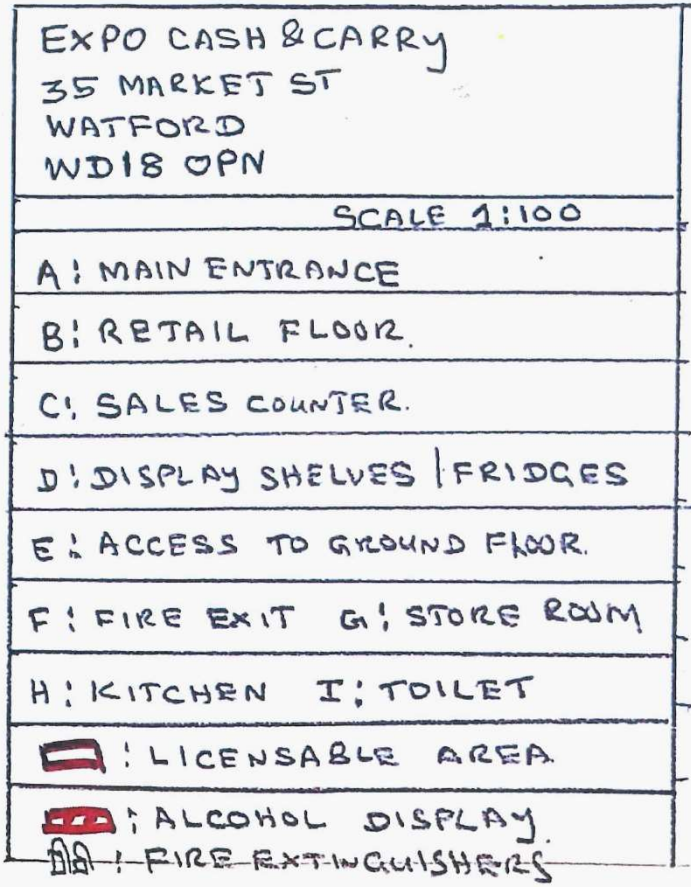 EXPO CASH & CARRY
35 MARKET ST
WATFORD
WD18 0PN
SCALE 1:100
A: MAIN ENTRANCE
B: RETAIL FLOOR.
C: SALES COUNTER.
D: DISPLAY SHELVES | FRIDGES
E: ACCESS TO GROUND FLOOR.
F: FIRE EXIT G: STORE ROOM
H: KITCHEN I: TOILET
: LICENSABLE AREA
: ALCOHOL DISPLAY.
: FIRE EXTINGUISHERS